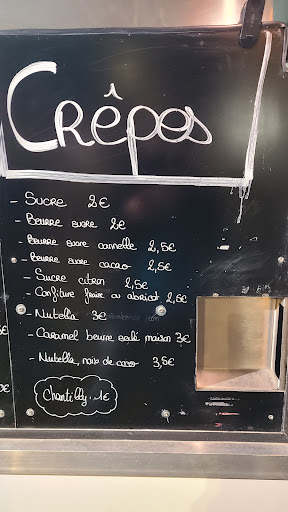 Crêpes
- Sucre 2€
- Beurre sucre 2€
- Beurre sucre cannelle 2,5€
- Beurre sucre cacao 2,5€
- Sucre citron 2,5€
- Confiture fraise ou abricot 2,5€
- Nutella 3€
- Caramel beurre salé maison 3€
- Nutella, noix de coco 3,5€
Chantilly 1€